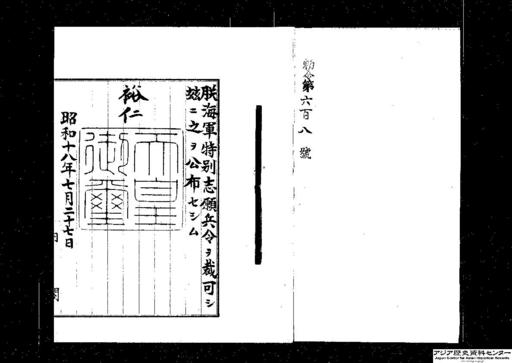 勅令第六百八號
朕海軍特別志願兵令ヲ裁可シ
玆ニ之ヲ公布セシム
裕仁
天皇御璽
昭和十八年七月二十七日
アジア歴史資料センター
Japan Center for Asian Historical Records